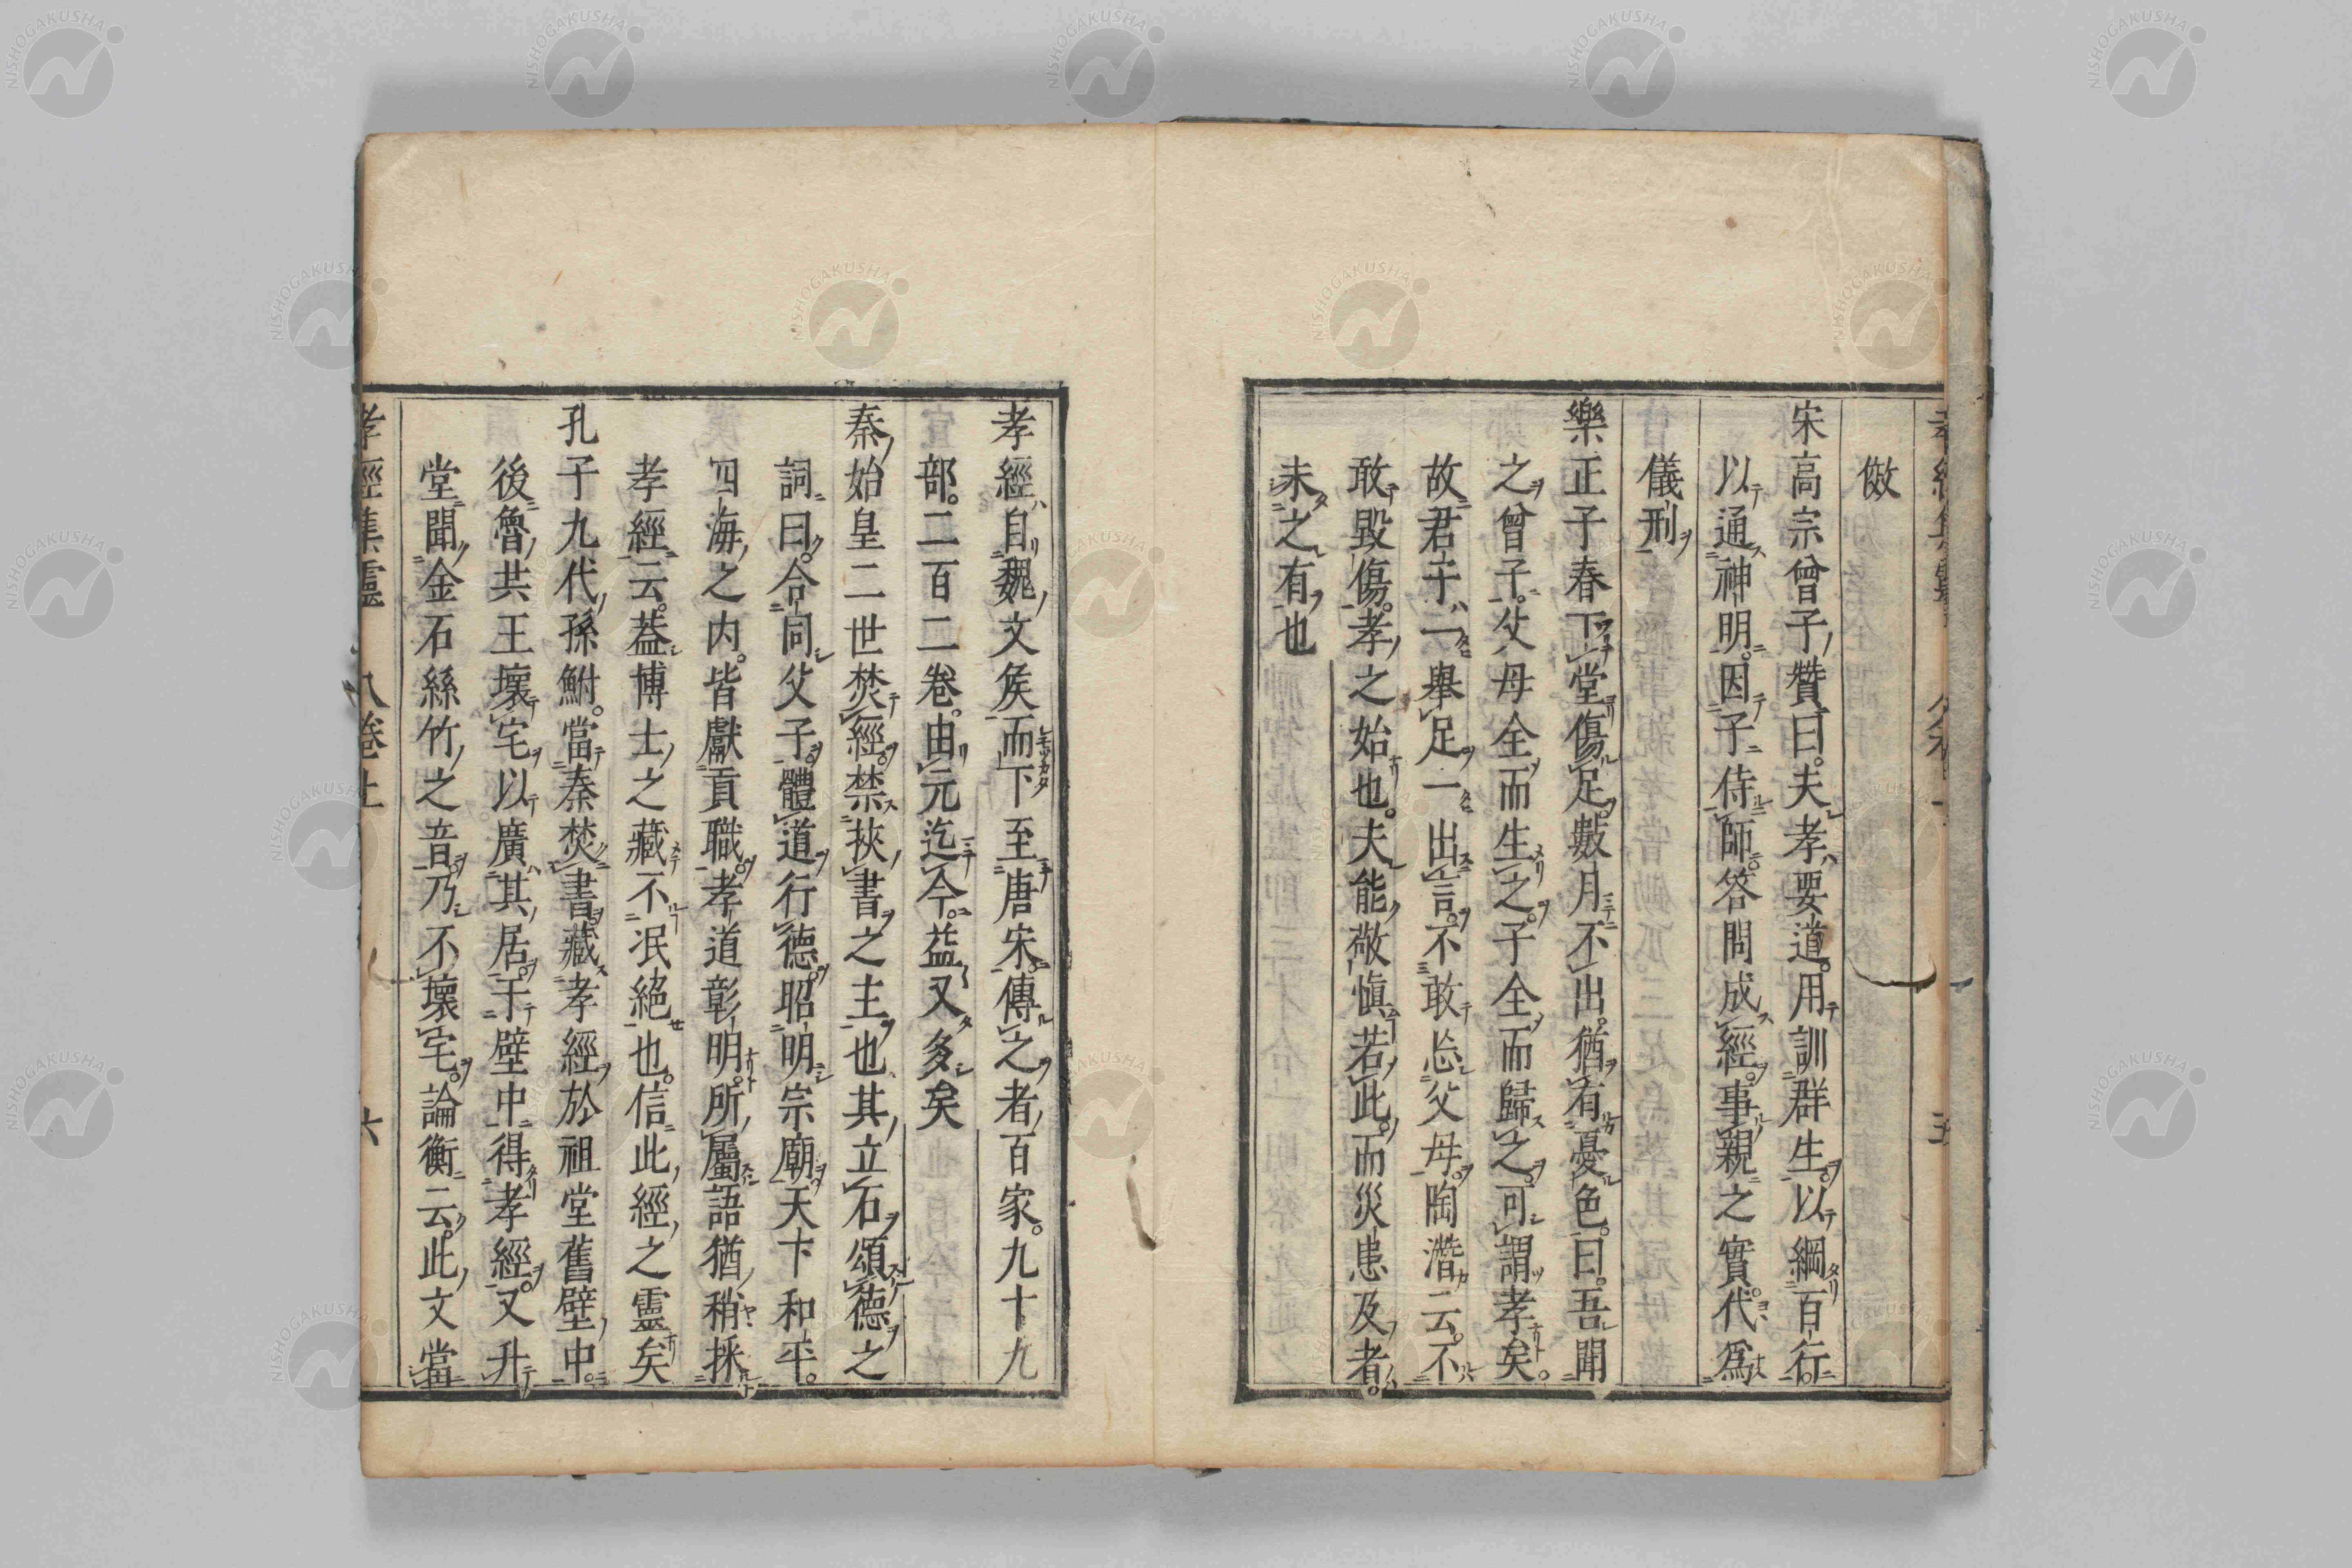 倣
宋高宗曾子贊曰。夫孝要道。用訓群生。以綱百行。
以通神明。因子侍師。答問成經。事親之實。代爲
儀刑
樂正子春下堂傷足。數月不出。猶有憂色。曰。吾聞
之曾子。父母全而生之。子全而歸之。可謂孝矣。
故君子一舉足一出言。不敢忘父母。陶潛云。不
敢毀傷。孝之始也。夫能敬愼若此。而災患及者。
未之有也
孝經自魏文矦而下至唐宋。傳之者百家。九十九
部。二百二卷。由元迄今。益又多矣
秦始皇二世焚經。禁挾書之主也其立石頌德之
詞曰。合同父子。體道行德。昭明宗廟天下和平。
四海之内。皆獻貢職。孝道彰明。所屬語猶稍採
孝經云。葢博士之藏不泯絕也。信此經之靈矣
孔子九代孫鮒。當秦焚書。藏孝經於祖堂舊壁中。
後魯共王壞宅以廣其居。于壁中得孝經。又升
堂聞金石絲竹之音。乃不壞宅。論衡云。此文當
孝經集靈 卷上 六
NISHOGAKUSHA